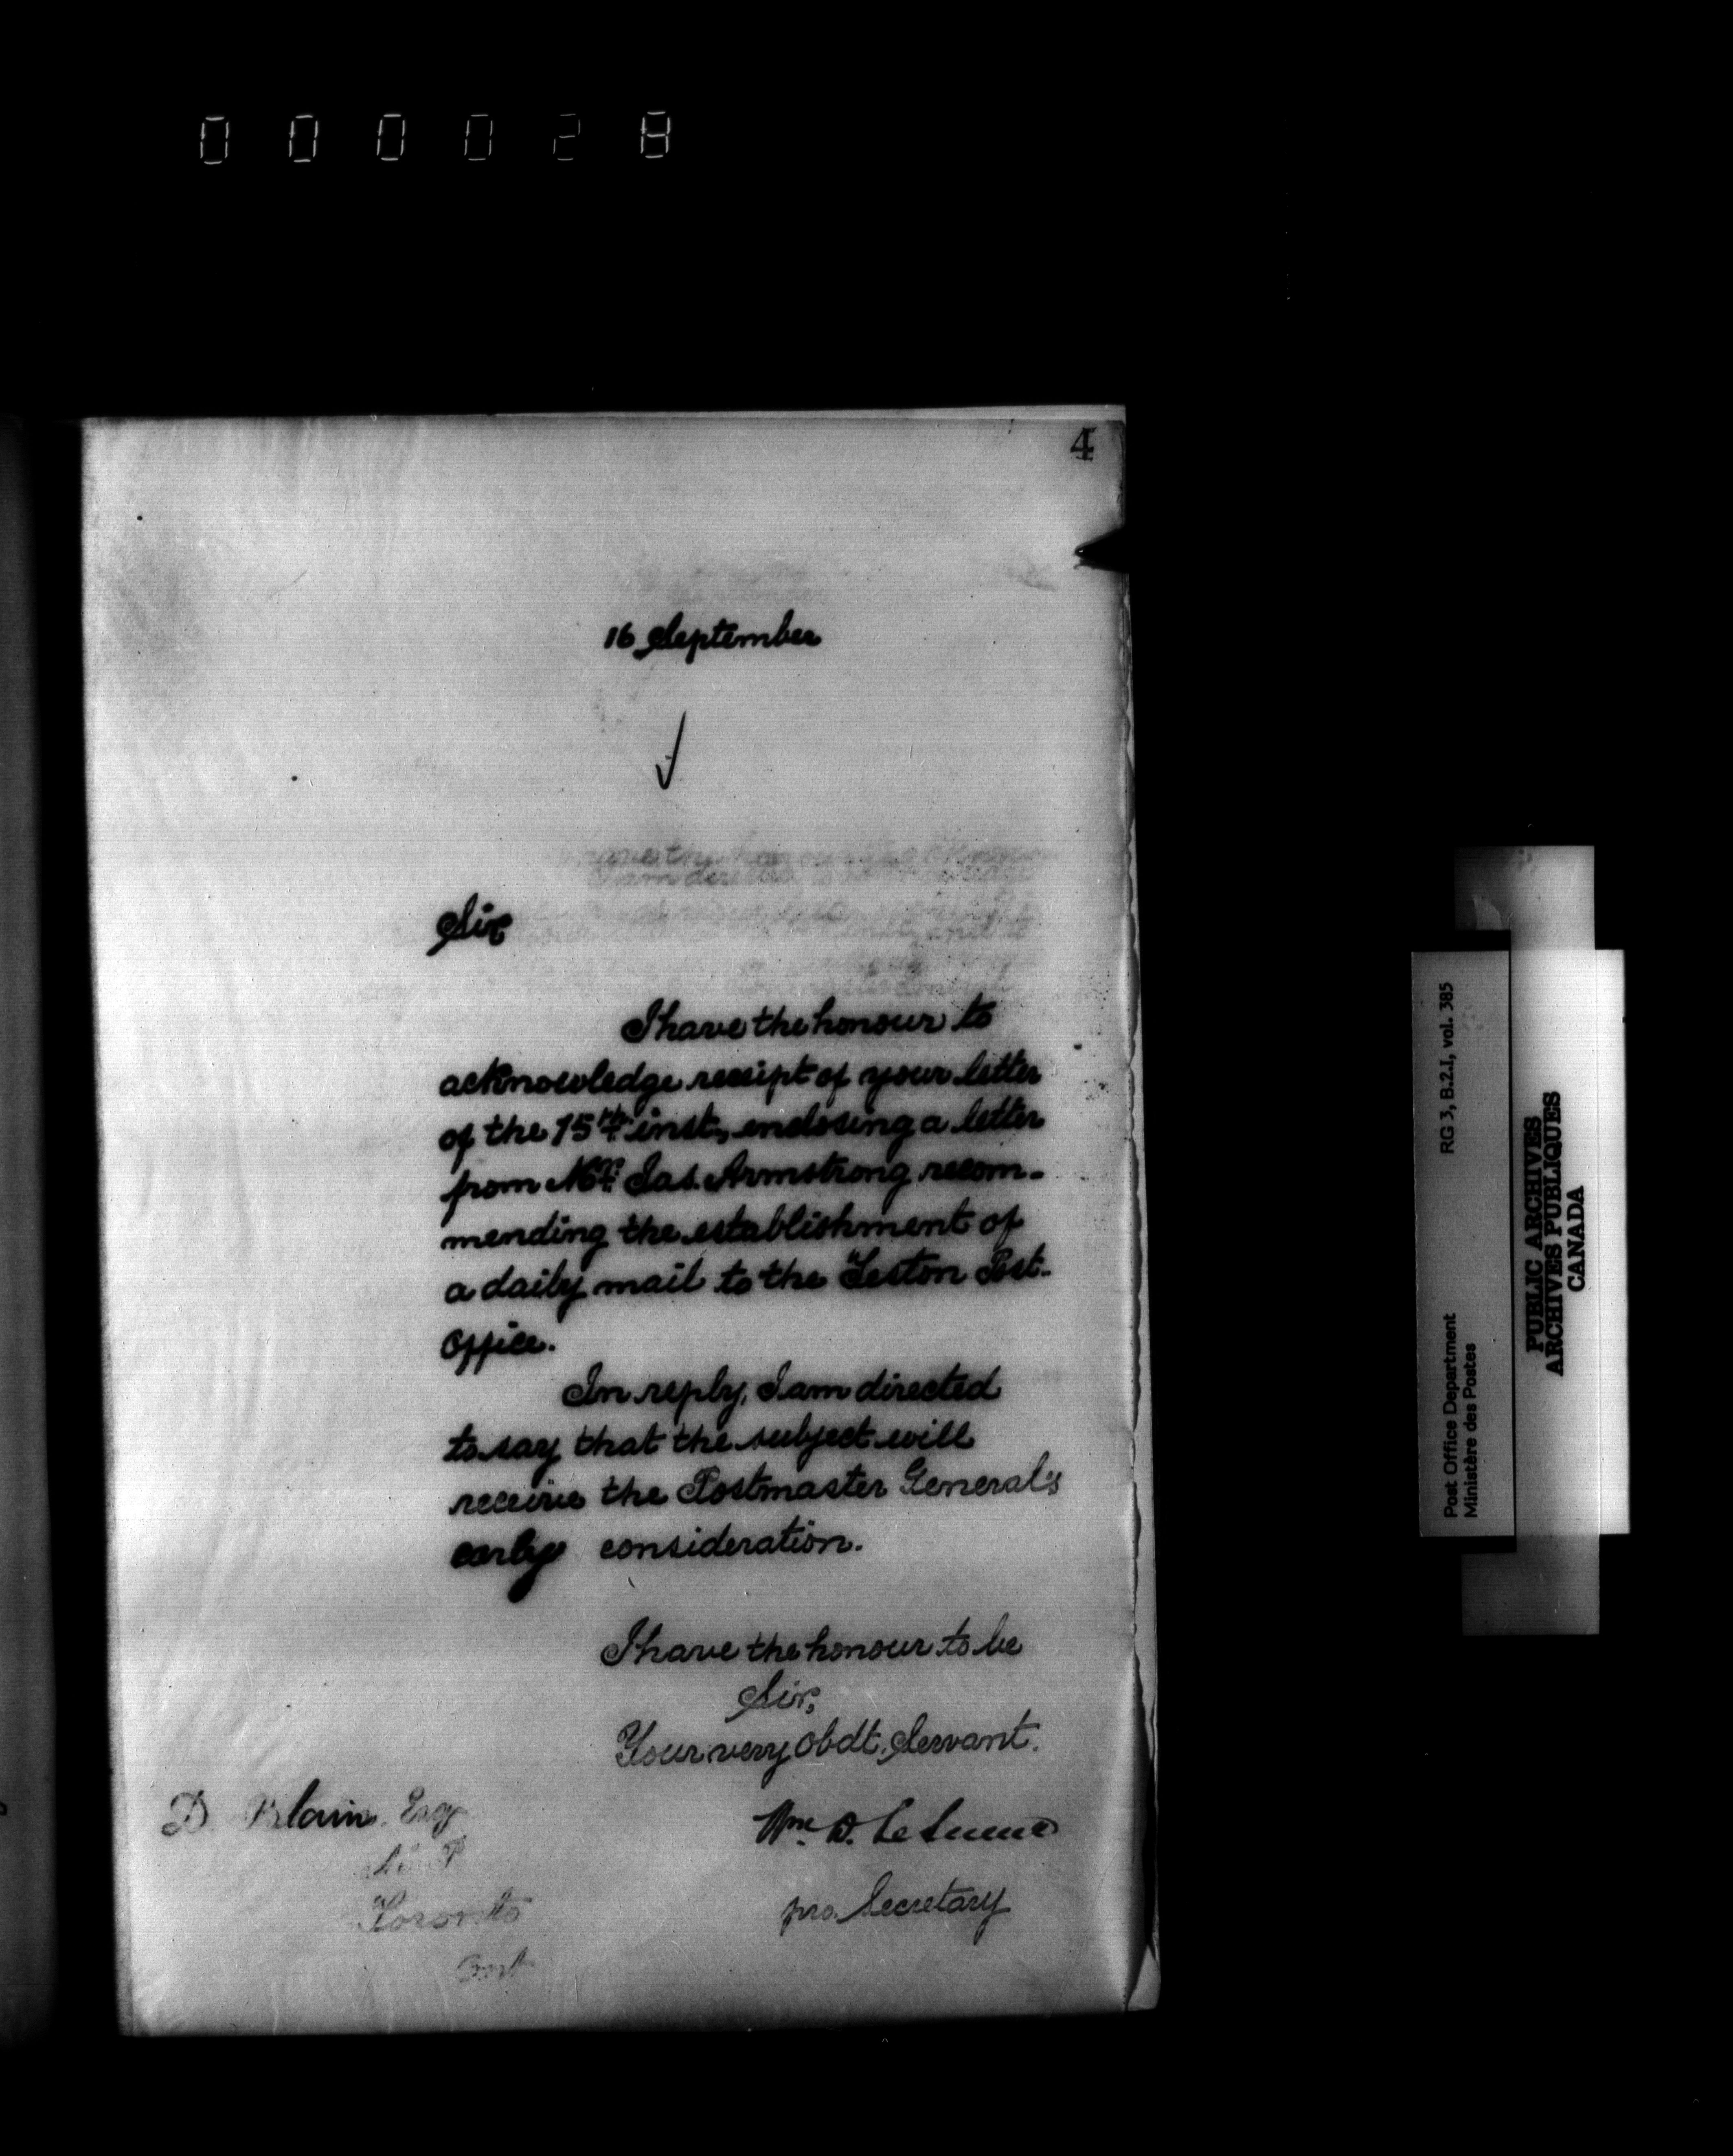 000028
4
16 September
Sir
I have the honour to
acknowledge receipt of your letter
of the 15th inst, enclosing a letter
from Mr. Jas. Armstrong recom-
mending the establishment of
a daily mail to the Teston Post-
Office.
In reply, I am directed
to say that the subject will
receive the Postmaster General's
early consideration.
I have the honour to be
Sir,
Your very Obdt. Servant.
Wm. D. LeSueur
pro. Secretary
D. Blain. Esq
M. P
Toronto
Ont
RG 3, B.2.I, vol. 385
Post Office Department
Ministère des Postes
PUBLIC ARCHIVES
ARCHIVES PUBLIQUES
CANADA